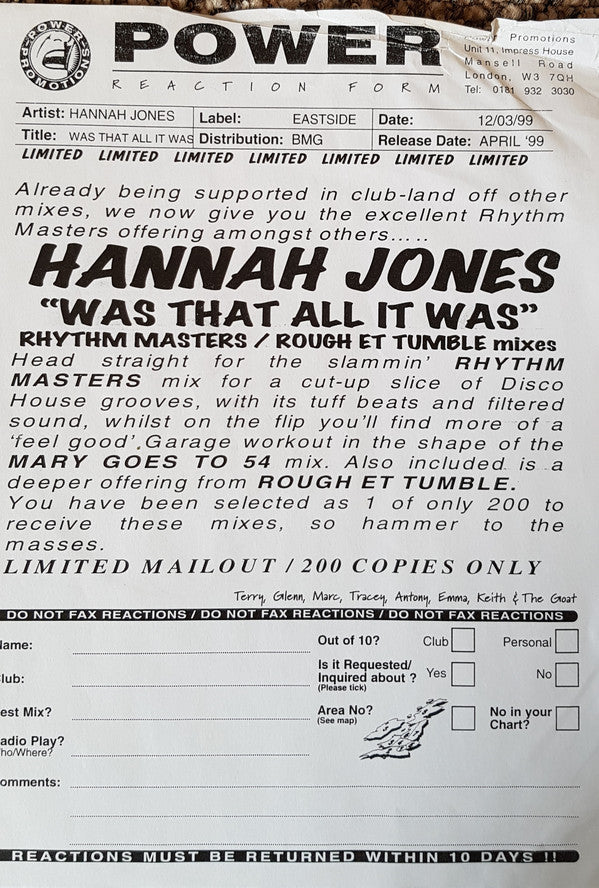 POWER
POWER
PROMOTIONS
REACTION FORM
Promotions
Unit 11, Impress House
Mansell Road
London, W3 7QH
Tel: 0181 932 3030
Artist: HANNAH JONES Label: EASTSIDE Date: 12/03/99
Title: WAS THAT ALL IT WAS Distribution: BMG Release Date: APRIL '99
LIMITED LIMITED LIMITED LIMITED LIMITED LIMITED LIMITED
Already being supported in club-land off other
mixes, we now give you the excellent Rhythm
Masters offering amongst others.....
HANNAH JONES
“WAS THAT ALL IT WAS”
RHYTHM MASTERS / ROUGH ET TUMBLE mixes
Head straight for the slammin’ RHYTHM
MASTERS mix for a cut-up slice of Disco
House grooves, with its tuff beats and filtered
sound, whilst on the flip you’ll find more of a
‘feel good’,Garage workout in the shape of the
MARY GOES TO 54 mix. Also included is a
deeper offering from ROUGH ET TUMBLE.
You have been selected as 1 of only 200 to
receive these mixes, so hammer to the
masses.
LIMITED MAILOUT / 200 COPIES ONLY
Terry, Glenn, Marc, Tracey, Antony, Emma, Keith & The Goat
DO NOT FAX REACTIONS / DO NOT FAX REACTIONS / DO NOT FAX REACTIONS
ame: Out of 10? Club Personal
lub: Is it Requested/
Inquired about ? Yes No
(Please tick)
est Mix? Area No? No in your
(See map) Chart?
adio Play?
ho/Where?
omments:
REACTIONS MUST BE RETURNED WITHIN 10 DAYS !!